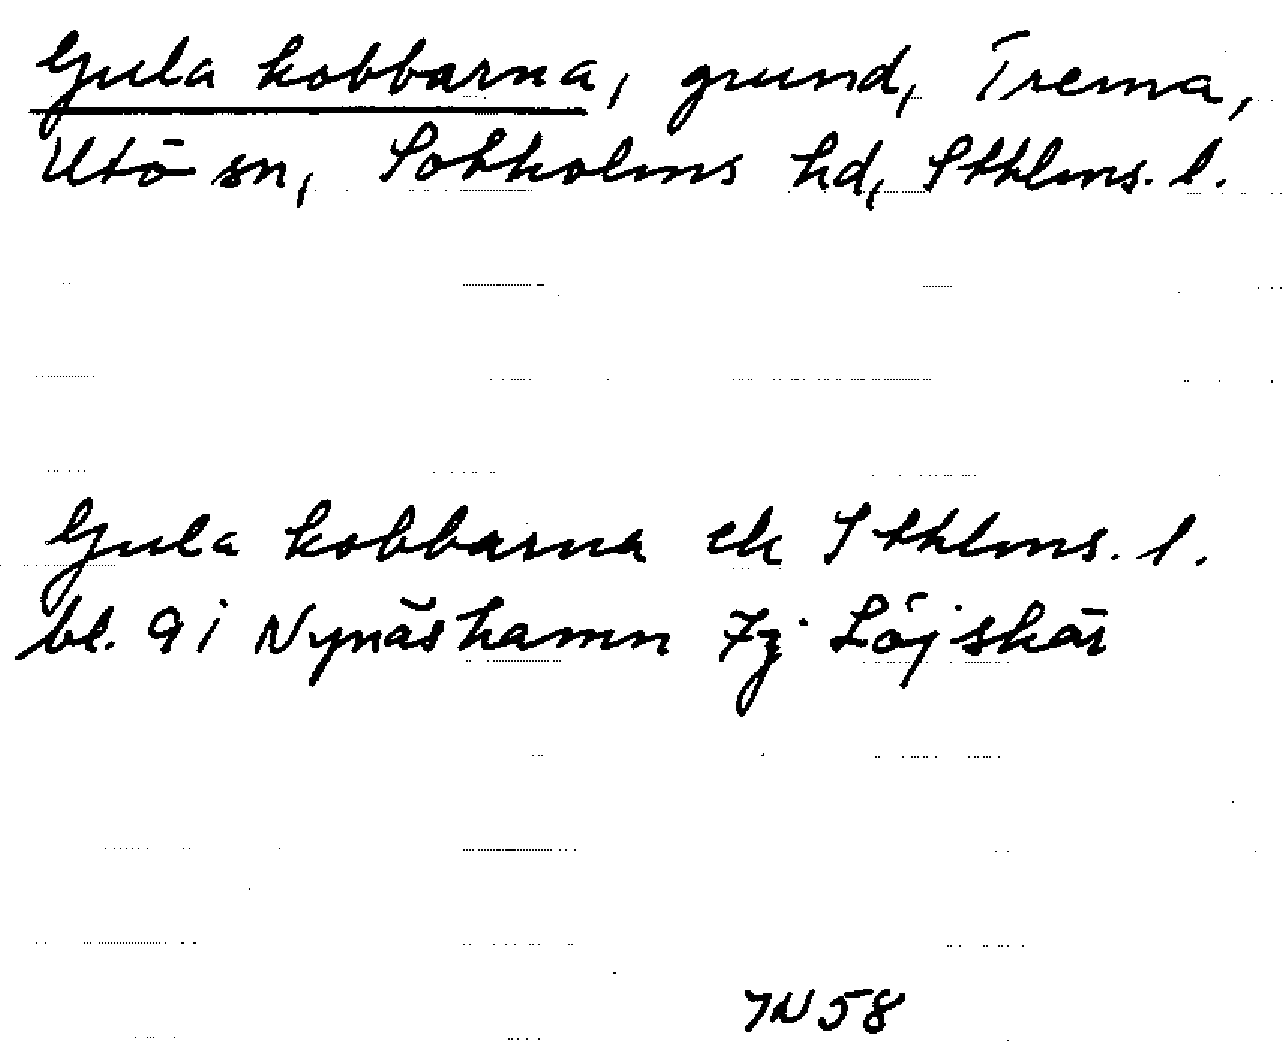 Gula kobbarna, grund, Trema,
Utö sn, Sotholms hd, Sthlms. l.
Gula kobbarna ek Sthlms. l.
bl. 9 i Nynäshamn 7j Löjskär
7N58